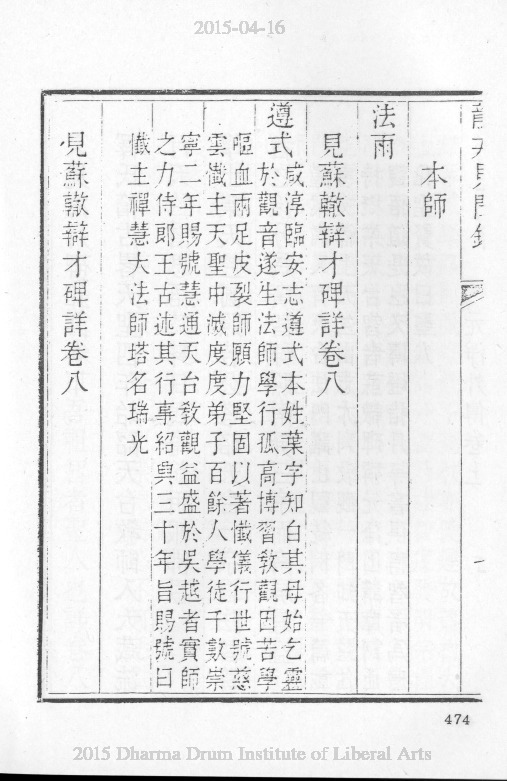 2015-04-16
本師
法雨
見蘇轍辯才碑詳卷八
遵式
咸淳臨安志遵式本姓葉字知白其母始乞靈
於觀音遂生法師學行孤高博習教觀因苦學
嘔血兩足皮裂師願力堅固以著懺儀行世號慈
雲懺主天聖中滅度度弟子百餘人學徒千數崇
寧二年賜號慧通天台教觀益盛於吳越者實師
之力侍郎王古述其行事紹興三十年旨賜號曰
懺主禪慧大法師塔名瑞光
見蘇轍辯才碑詳卷八
474
2015 Dharma Drum Institute of Liberal Arts